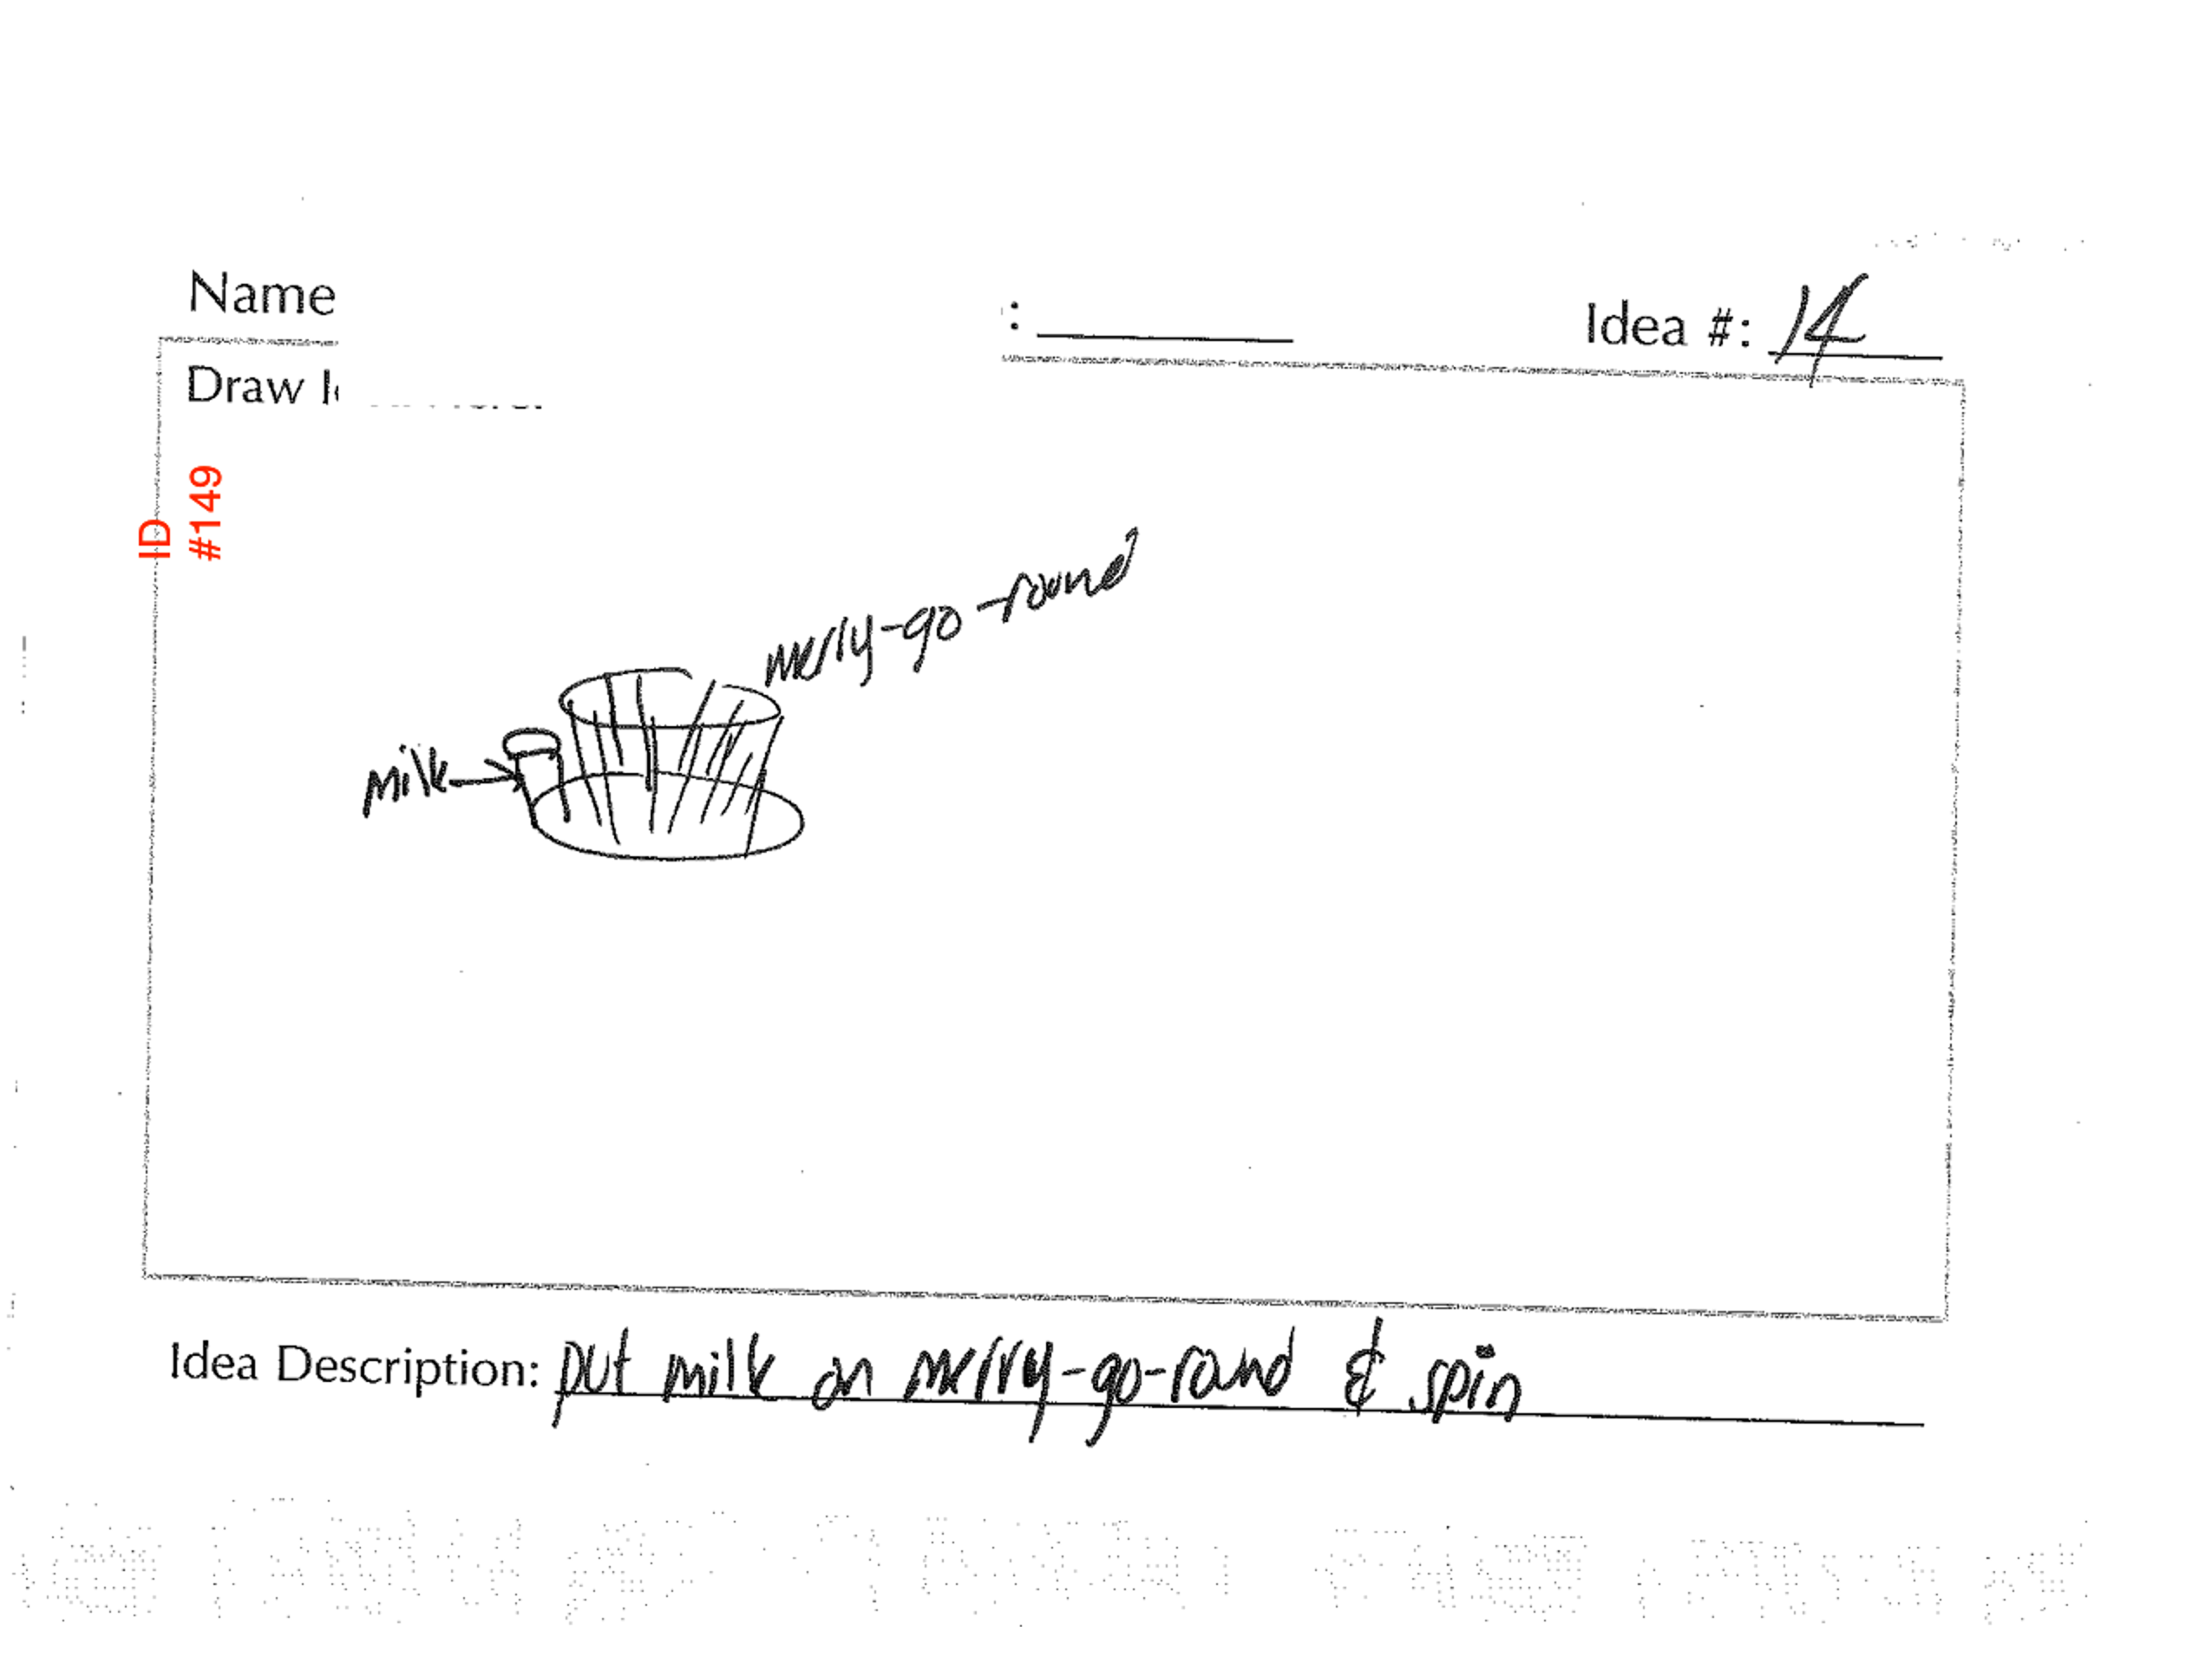 Name : Idea #: 14
Draw
ID
#149
merry-go-round
milk
Idea Description: put milk on merry-go-round & spin